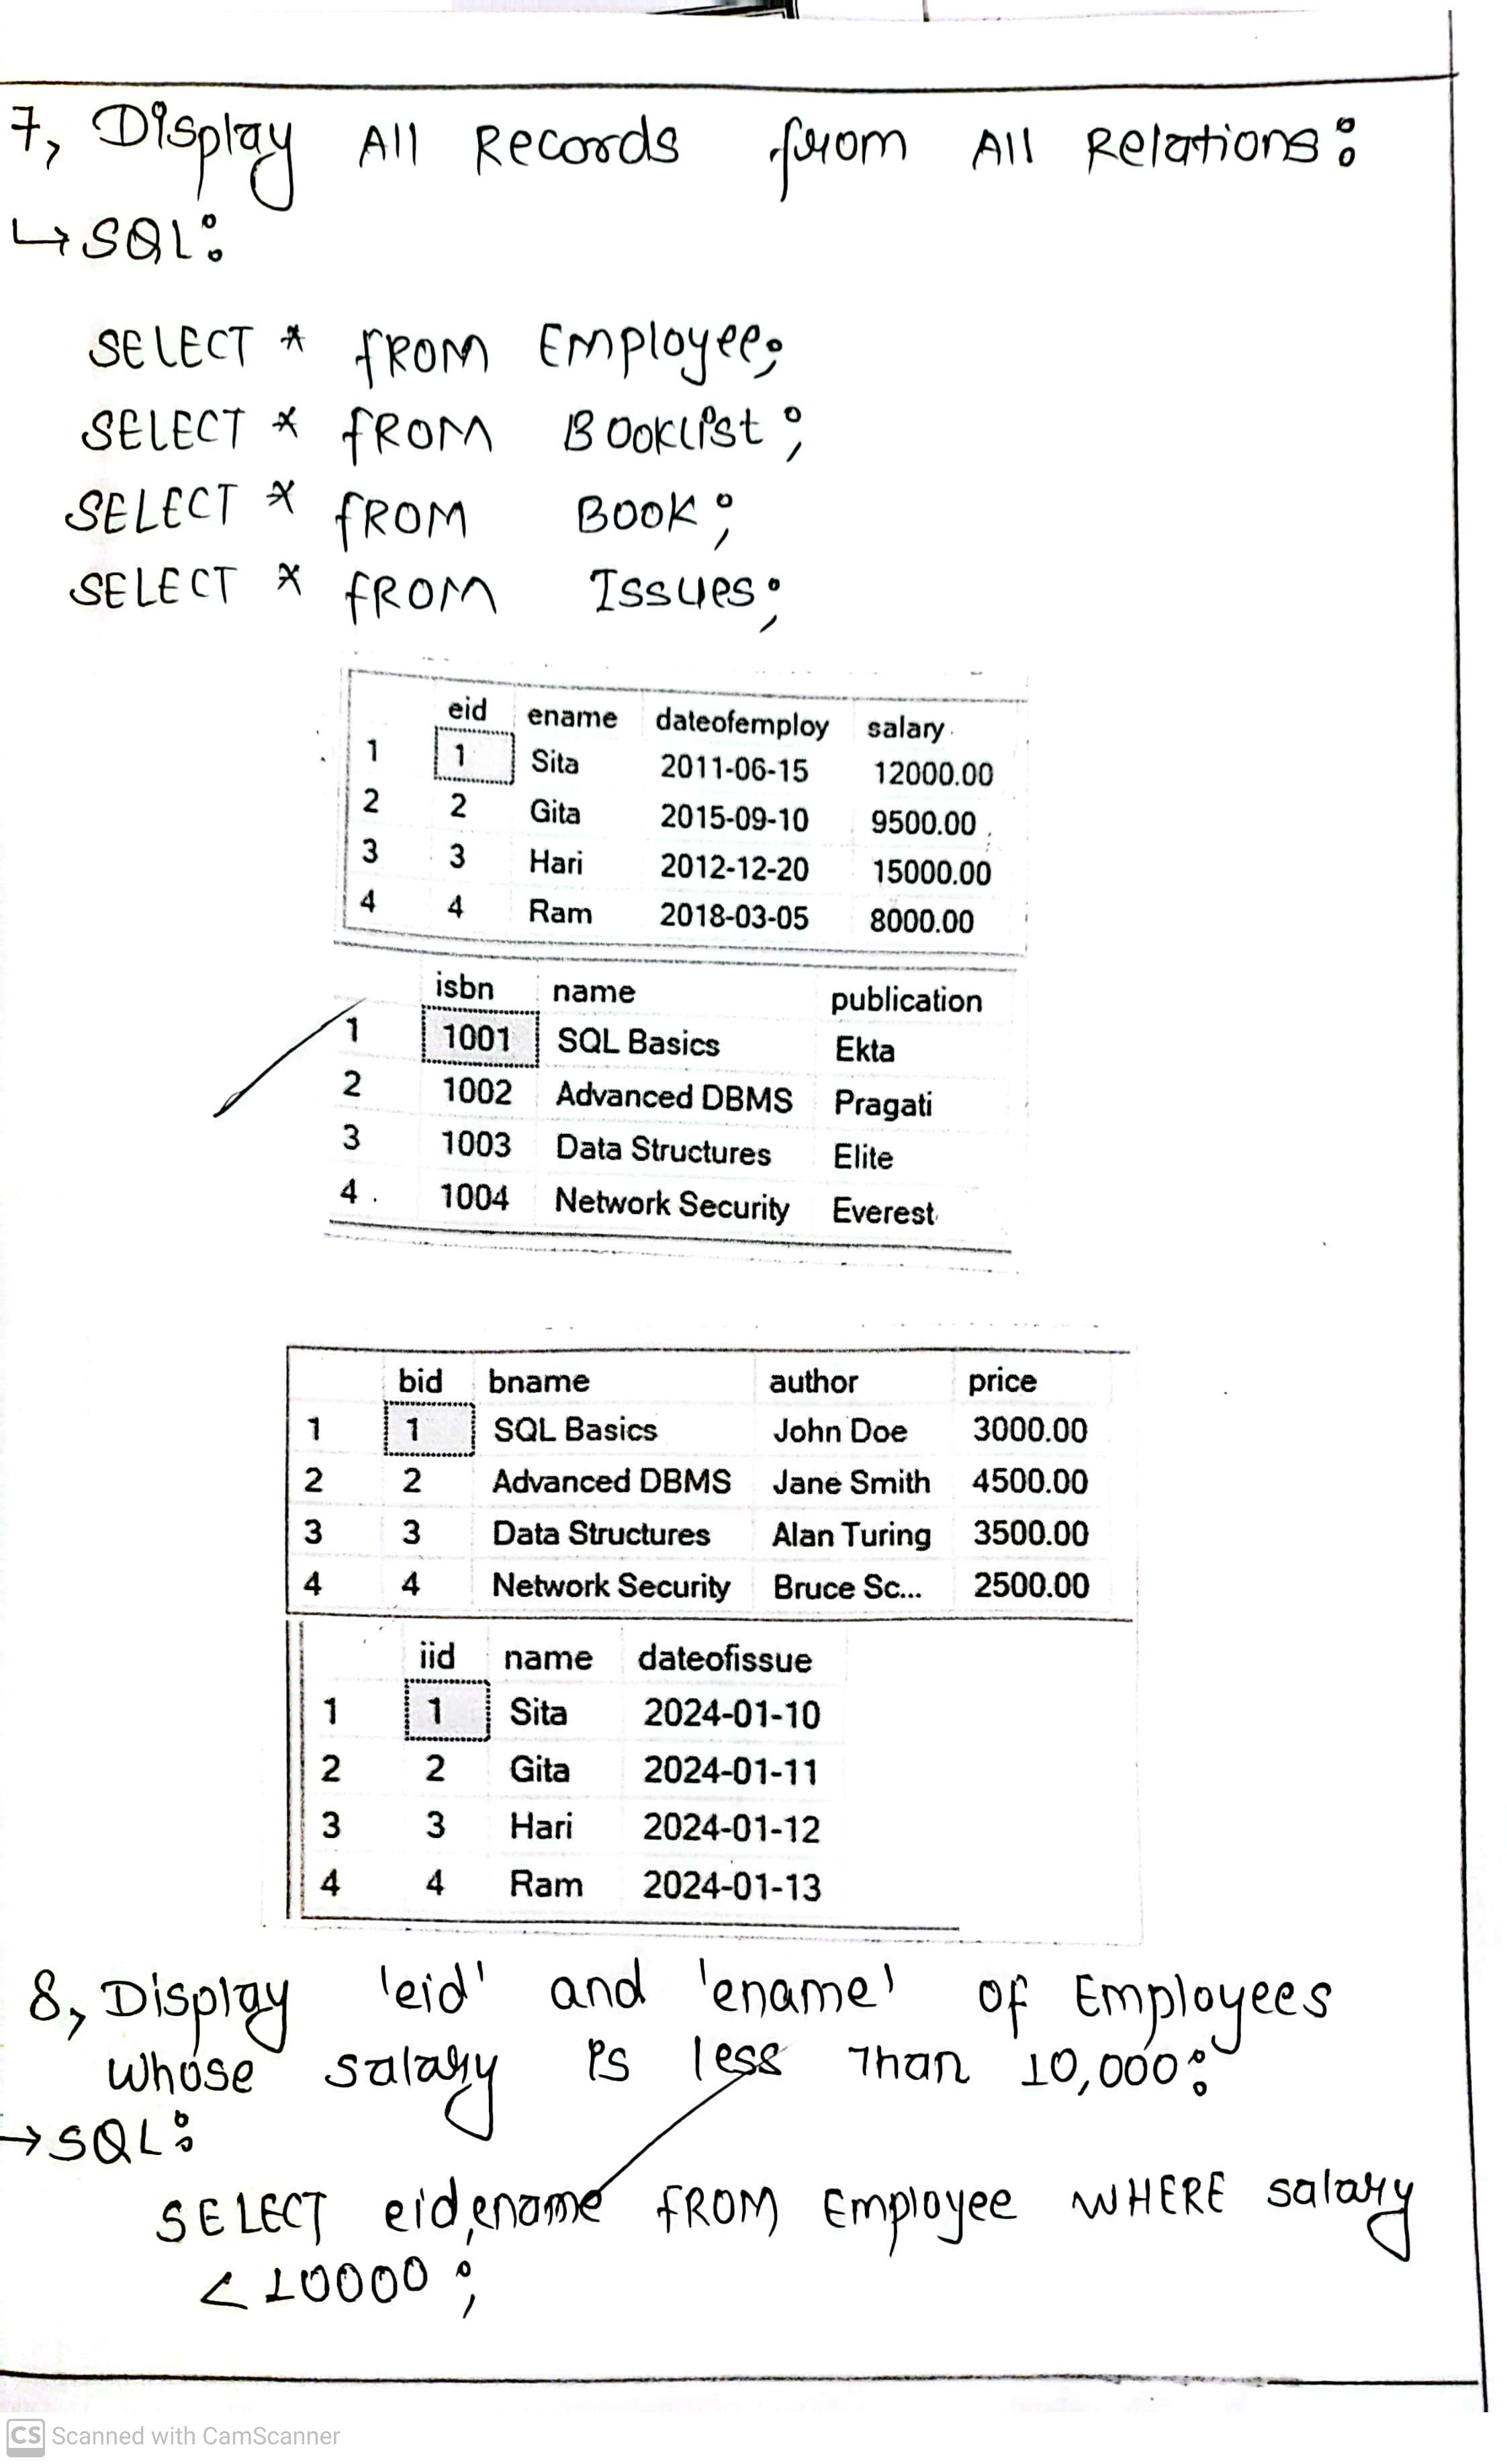 7, Display All Records from All Relations:
↳ SQL:
SELECT * FROM Employee;
SELECT * FROM Booklist;
SELECT * FROM Book;
SELECT * FROM Issues;
eid ename dateofemploy salary
1 1 Sita 2011-06-15 12000.00
2 2 Gita 2015-09-10 9500.00
3 3 Hari 2012-12-20 15000.00
4 4 Ram 2018-03-05 8000.00
isbn name publication
1 1001 SQL Basics Ekta
2 1002 Advanced DBMS Pragati
3 1003 Data Structures Elite
4 1004 Network Security Everest
bid bname author price
1 1 SQL Basics John Doe 3000.00
2 2 Advanced DBMS Jane Smith 4500.00
3 3 Data Structures Alan Turing 3500.00
4 4 Network Security Bruce Sc... 2500.00
iid name dateofissue
1 1 Sita 2024-01-10
2 2 Gita 2024-01-11
3 3 Hari 2024-01-12
4 4 Ram 2024-01-13
8, Display 'eid' and 'ename' of Employees
whose salary is less Than 10,000:
→ SQL:
SELECT eid,ename FROM Employee WHERE salary
< 10000;
CS Scanned with CamScanner